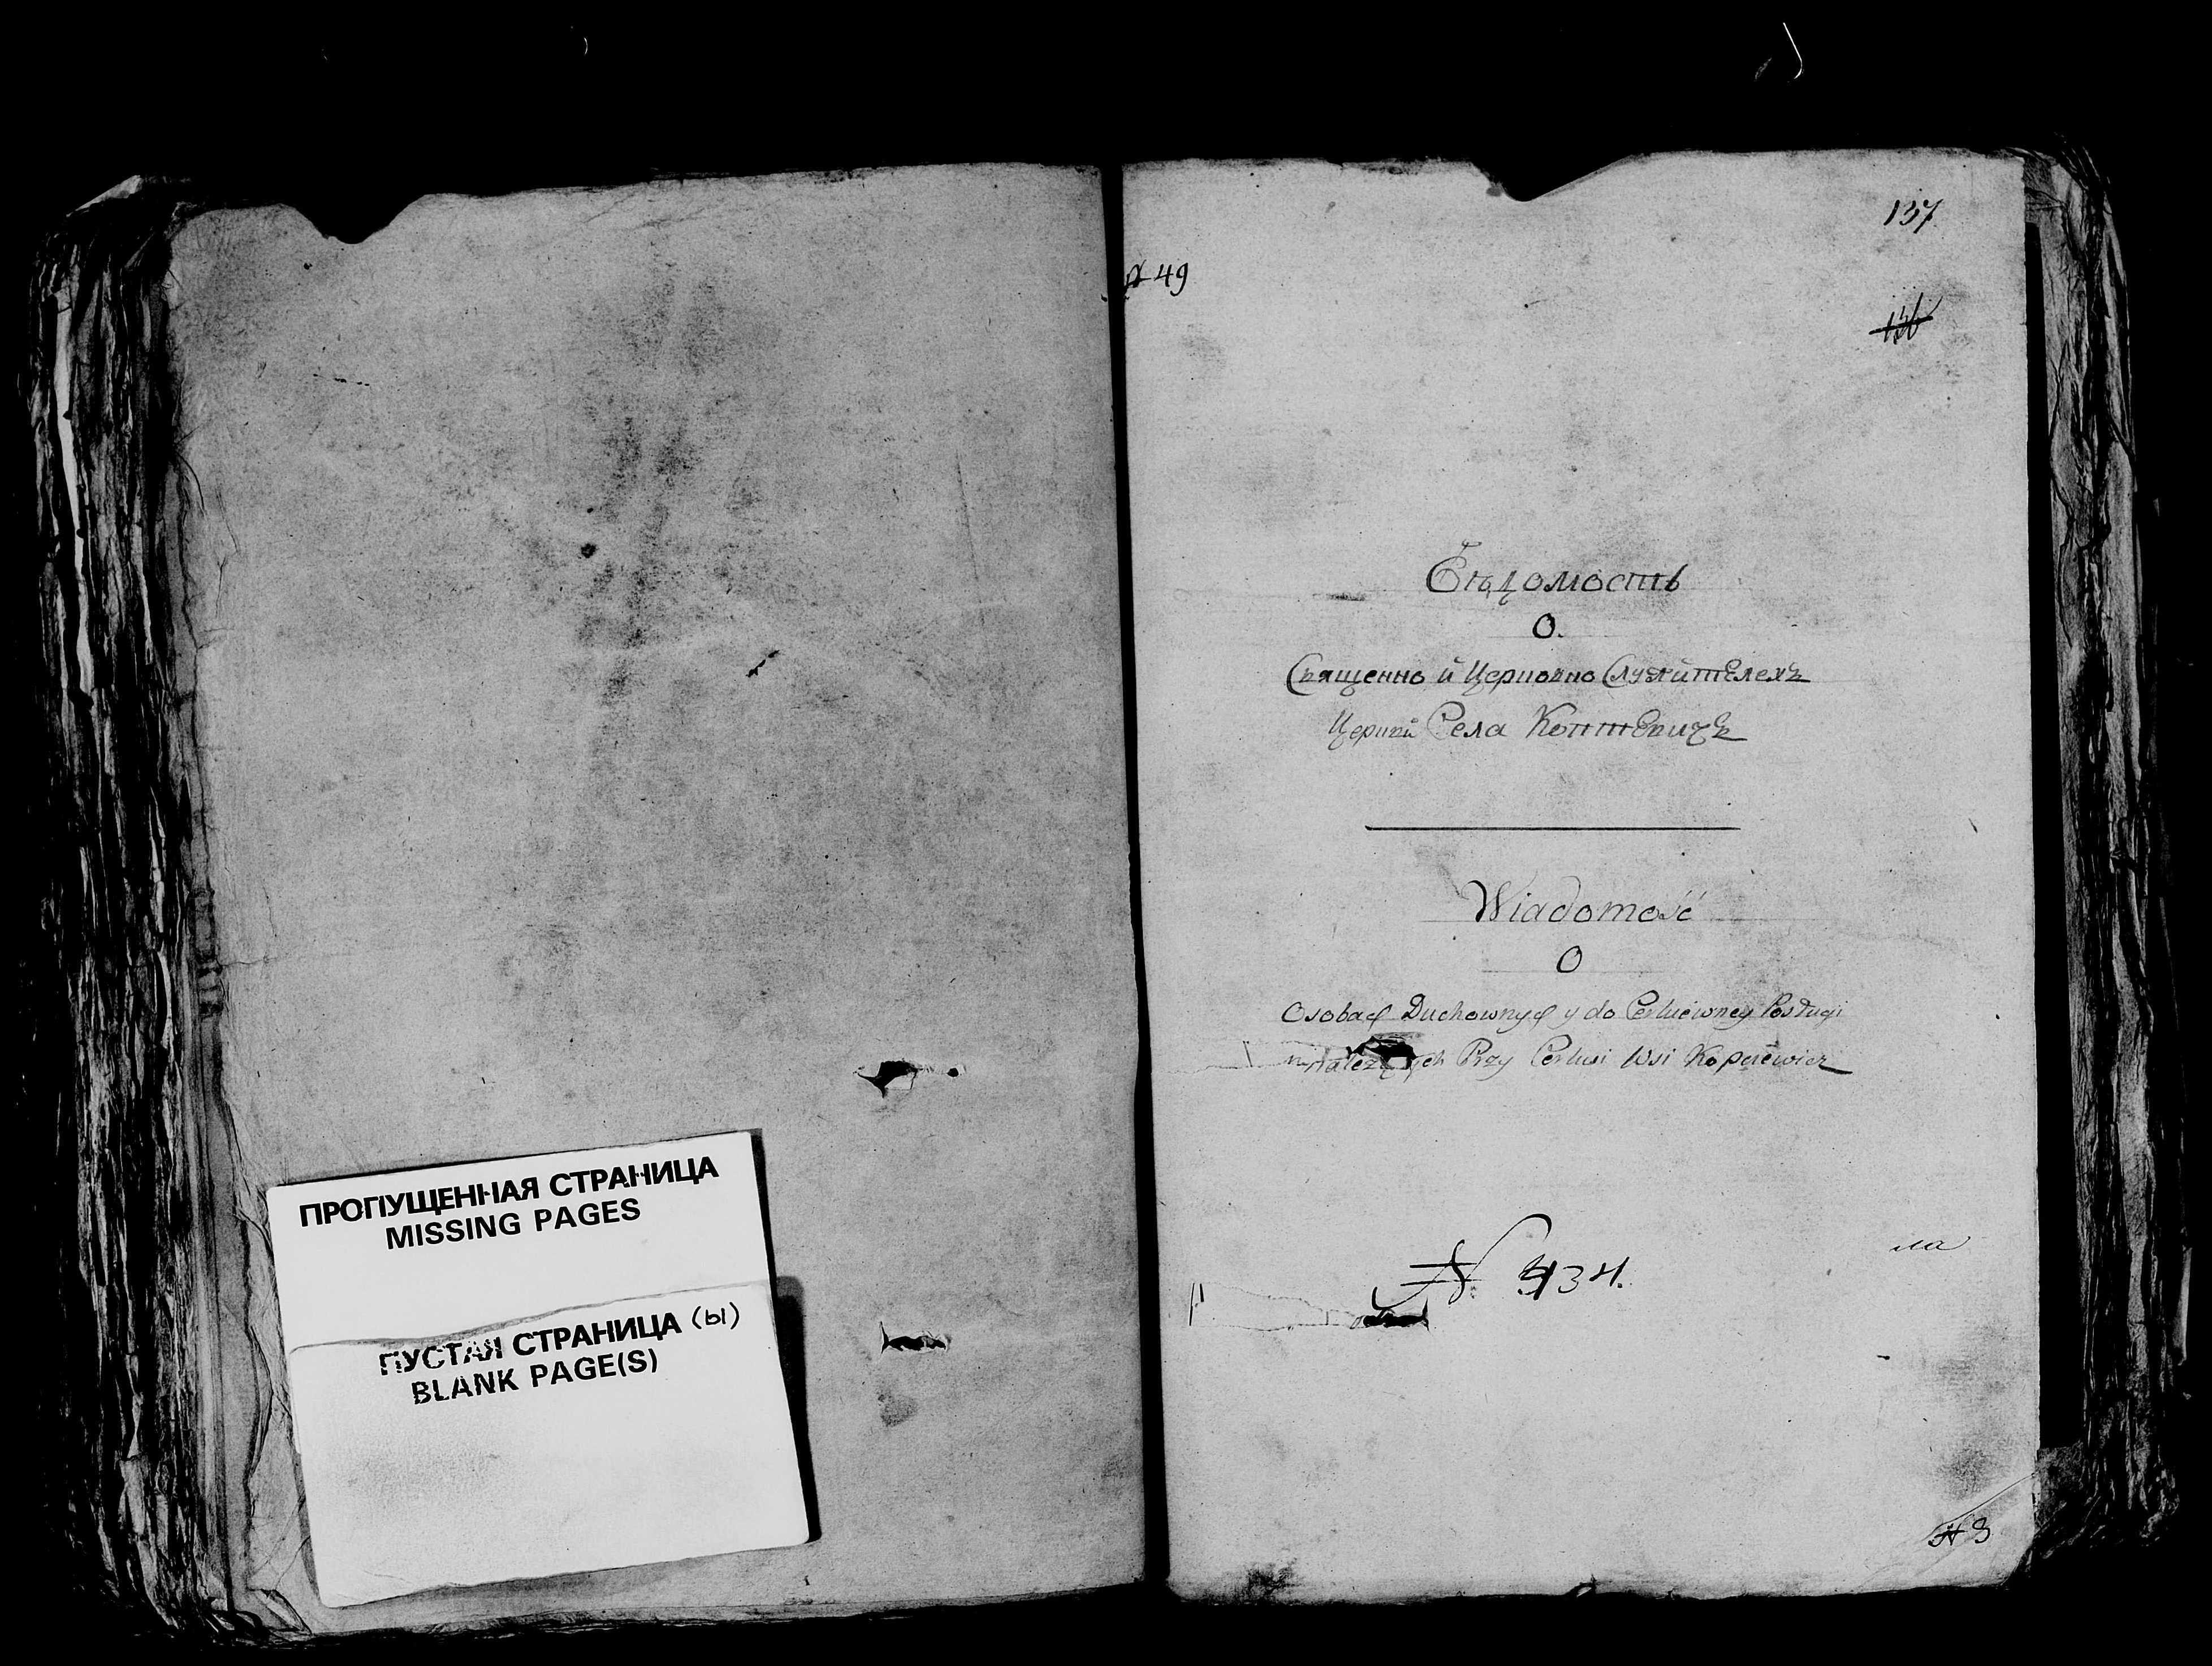 ПРОПУЩЕННАЯ СТРАНИЦА
MISSING PAGES
ПУСТАЯ СТРАНИЦА (ы)
BLANK PAGE(S)
137
№ 49
136
Вѣдомость
О.
Священно и Церковно Служителехъ
Церкви Села Коптевичъ
Wiadomość
O
Osobach Duchownych y do Cerkiewney Posługi
należących Przy Cerkwi Wsi Kopcewicz
№ 434.
ла
№ 3